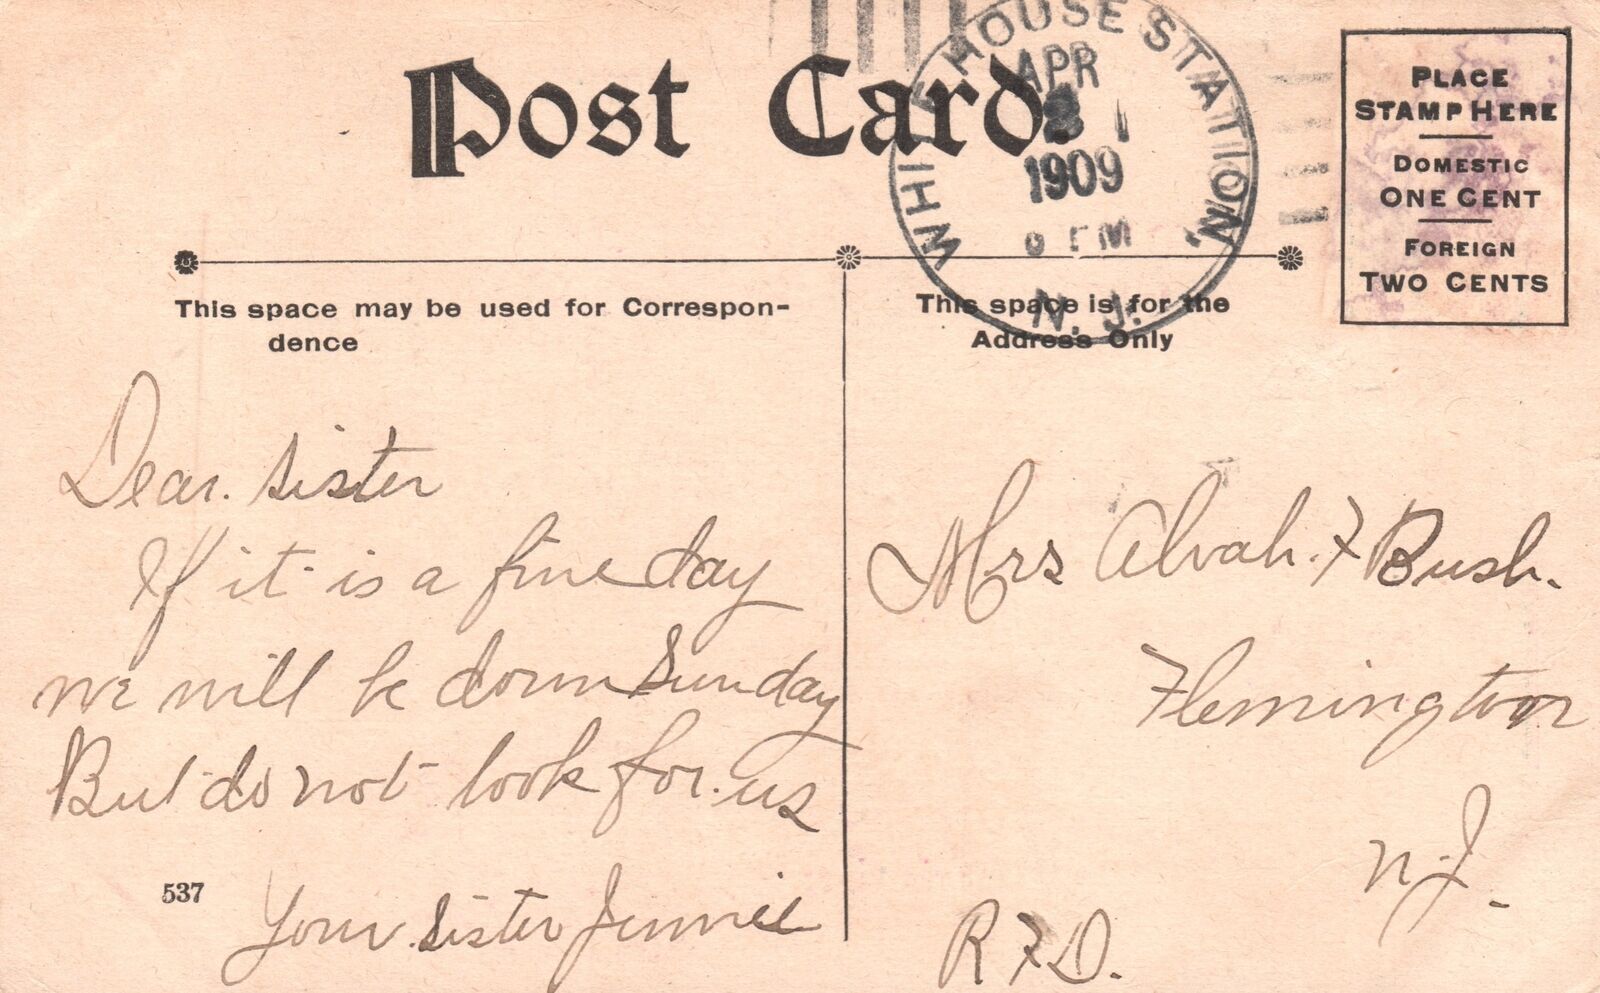 Post Card.
WHITE HOUSE STATION,
APR
1909
N. J.
PLACE
STAMP HERE
DOMESTIC
ONE CENT
FOREIGN
TWO CENTS
This space may be used for Correspon-
dence
This space is for the
Address Only
Dear. Sister
If it is a fine day
we will be down Sunday
But do not look for us
Your Sister Jennie
537
Mrs Alvah. F Bush.
Flemington
N. J.
R F D.